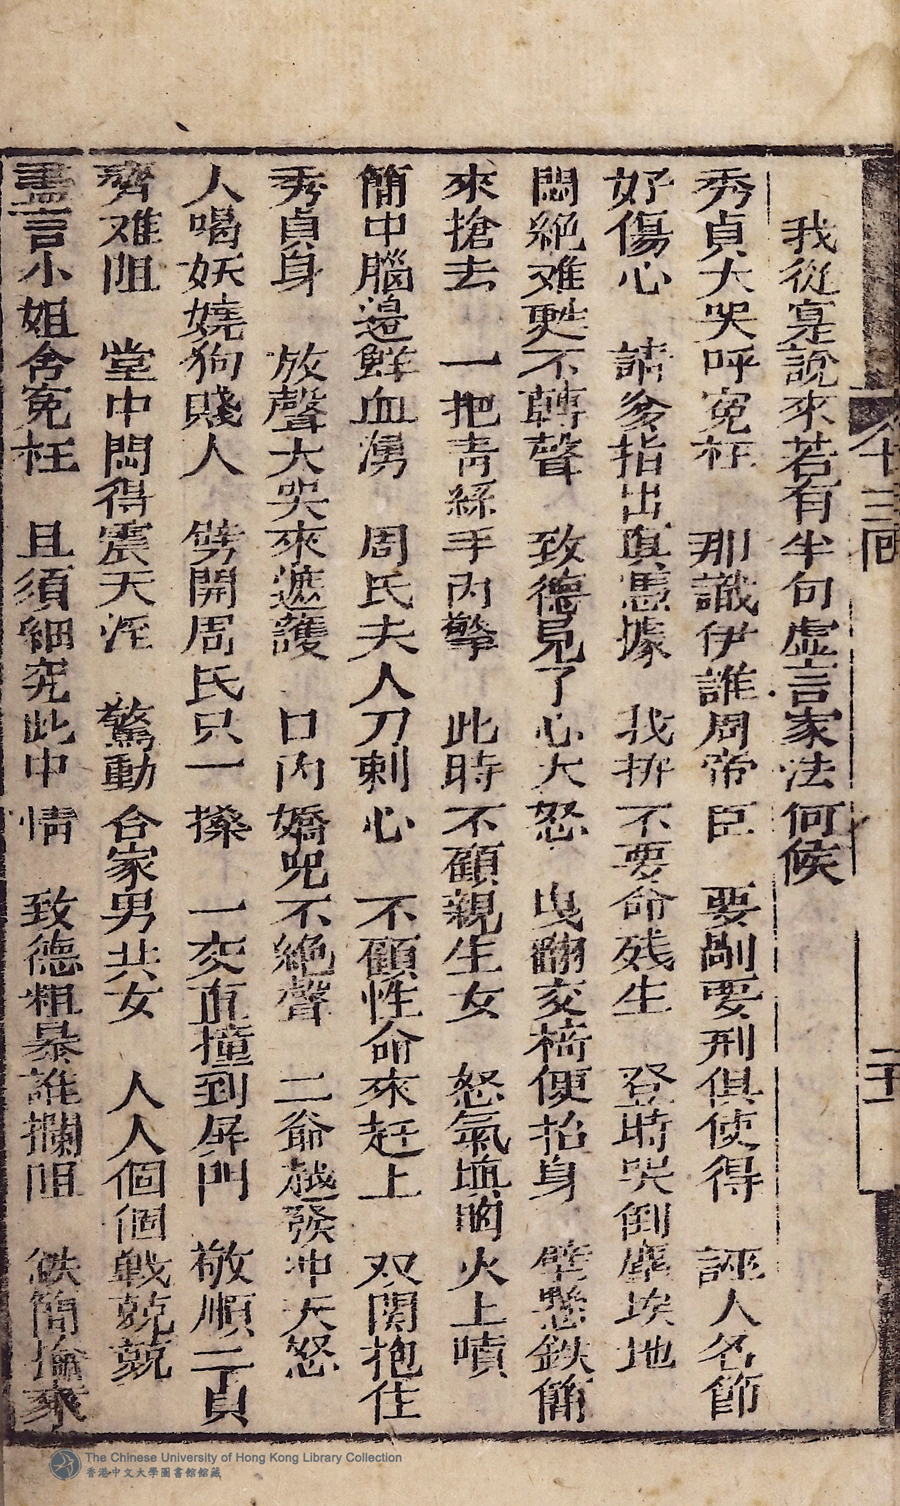 我從寔說來若有半句虛言家法何候
秀貞大哭呼冤枉　那識伊誰周帝臣　要剮要刑俱使得　誣人名節
好傷心　請爹指出真憑據　我拚不要命残生　登時哭倒塵埃地
悶絕难甦不轉聲　致德見了心大怒　曳翻交椅便抬身　壁懸鉄簡
來搶去　一把青絲手內擎　此時不顧親生女　怒氣填胸火上噴
簡中腦邉鮮血湧　周氏夫人刀刺心　不顧性命來赶上　双関抱住
秀貞身　放聲大哭來遮護　口內嬌兒不絕聲　二爺越發冲天怒
人喝妖嬈狗賤人　劈開周氏只一搡　一交直撞到屏門　敬順二貞
齊难阻　堂中閙得震天滛　驚動合家男共女　人人個個戰兢兢
盡言小姐含冤枉　且須細究此中情　致德粗暴誰攔阻　鉄簡掄來
十三囘
二十
The Chinese University of Hong Kong Library Collection
香港中文大學圖書館館藏